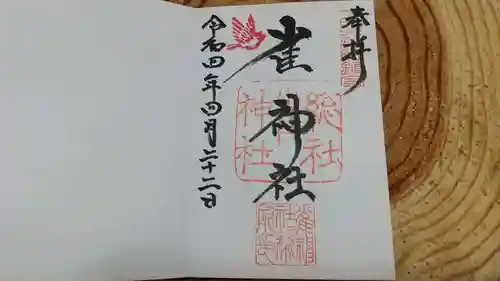 奉拝
雀神社
総社
神社
令和四年四月二十二日